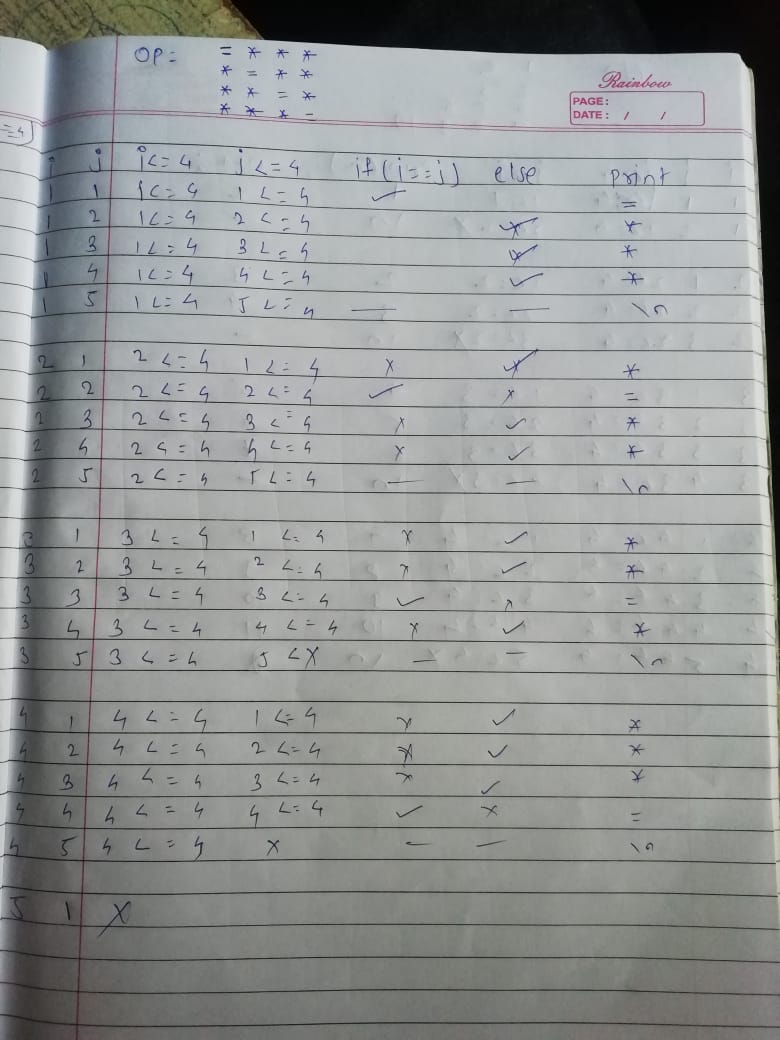 OP: = * * *
* = * *
* * = *
* * * =
Rainbow
PAGE:
DATE: / /
=4)
i j i<=4 j<=4 if(i==j) else print
1 1 1<=4 1<=4 ✓ =
1 2 1<=4 2<=4 ✓ *
1 3 1<=4 3<=4 ✓ *
1 4 1<=4 4<=4 ✓ *
1 5 1<=4 5<=4 — — \n
2 1 2<=4 1<=4 x ✓ *
2 2 2<=4 2<=4 ✓ x =
2 3 2<=4 3<=4 x ✓ *
2 4 2<=4 4<=4 x ✓ *
2 5 2<=4 5<=4 — — \n
3 1 3<=4 1<=4 x ✓ *
3 2 3<=4 2<=4 x ✓ *
3 3 3<=4 3<=4 ✓ x =
3 4 3<=4 4<=4 x ✓ *
3 5 3<=4 5<x — — \n
4 1 4<=4 1<=4 x ✓ *
4 2 4<=4 2<=4 x ✓ *
4 3 4<=4 3<=4 x ✓ *
4 4 4<=4 4<=4 ✓ x =
4 5 4<=4 x — — \n
5 1 x